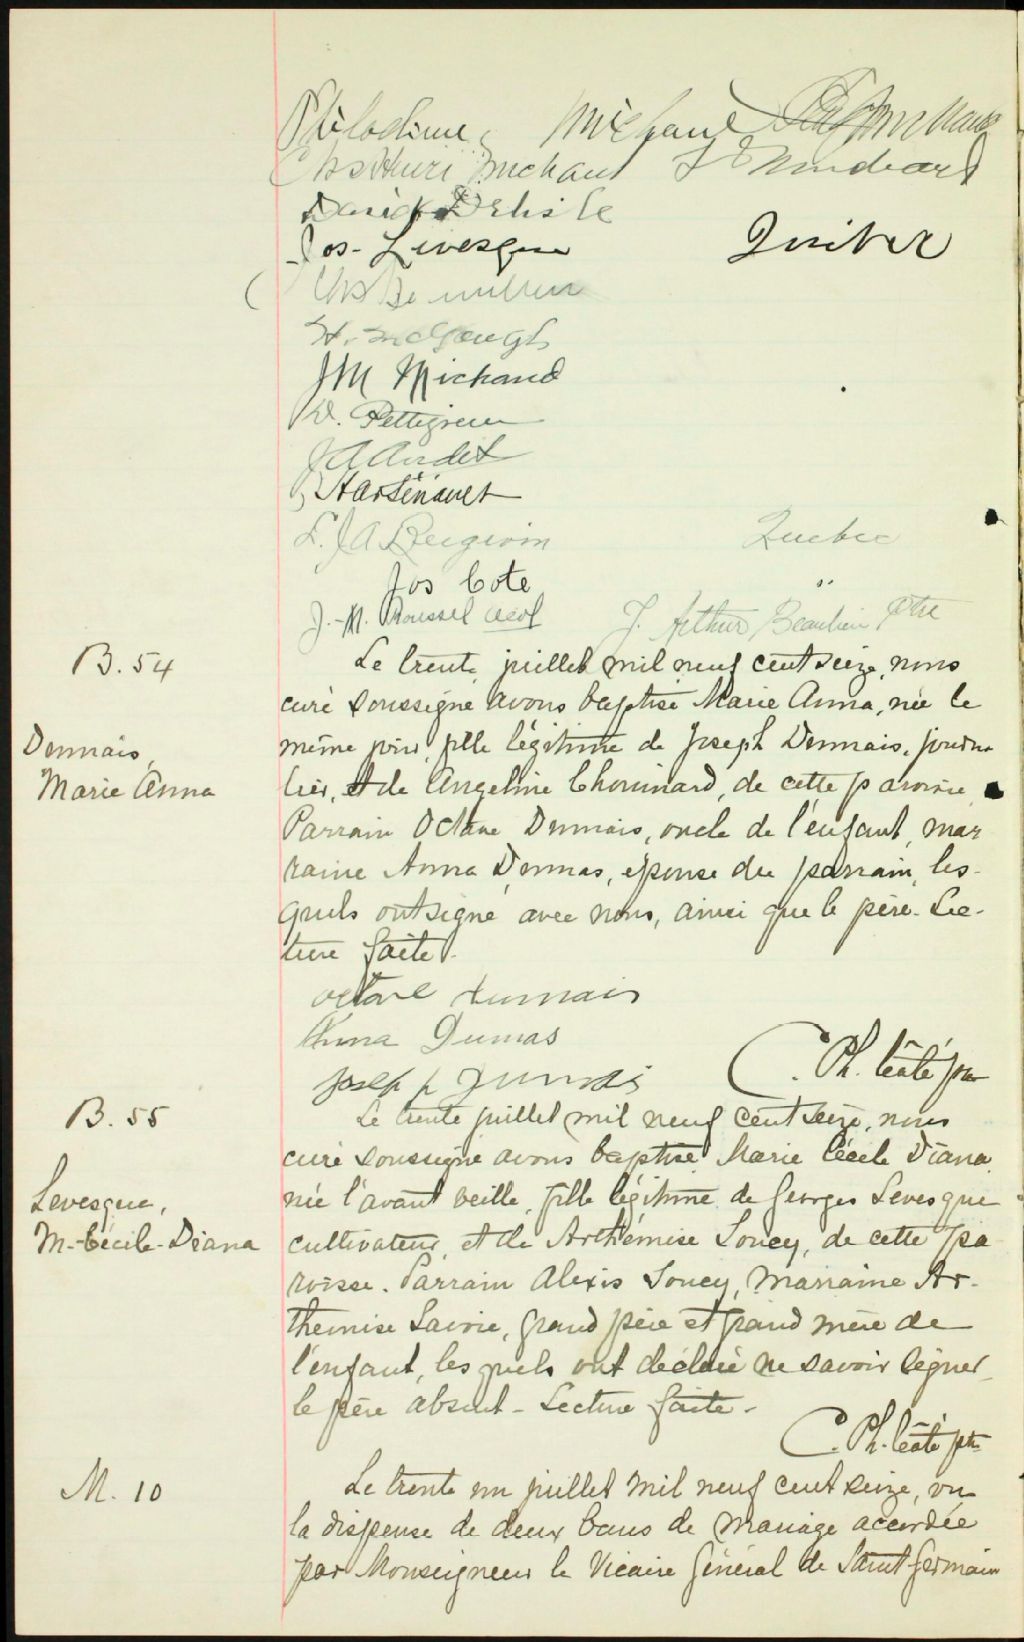 Philodime Michaud
Chs Henri Michaud
David Delisle
Jos- Livesque
H. McGough
JM Michaud
D. Pettigrew
J A Audet
Harsenault
L. J A Bergevin Quebec
Jos Cote "
J.-M. Roussel J. Arthur Beaulieu Ptre
B. 54
Le trente juillet mil neuf cent seize, nous
curé soussigné avons baptisé Marie Anna, née le
Dumais,
même jour, fille légitime de Joseph Dumais, journa
Marie Anna
lier, et de Angeline Chouinard, de cette paroisse
Parrain Octave Dumais, oncle de l'enfant, mar
raine Anna Dumas, épouse du parrain, les-
quels ont signé avec nous, ainsi que le père. Lec-
ture faite.
octave dumais
Anna Dumas
Joseph Dumais C. Ph. Coté ptr
B. 55
Le trente juillet mil neuf cent seize, nous
curé soussigné avons baptisé Marie Cécile Diana
Levesque,
née l'avant veille, fille légitime de Georges Levesque
M.-Cécile-Diana
cultivateur, et de Arthémise Soucy, de cette pa
roisse. Parrain Alexis Soucy, marraine Ar-
themise Savoie, grand père et grand mère de
l'enfant, lesquels ont déclaré ne savoir signer,
le père absent - Lecture faite -
C. Ph. Coté ptr
M. 10
Le trente un juillet mil neuf cent seize, vu
la dispense de deux bans de mariage accordée
par Monseigneur le Vicaire Général de Saint Germain